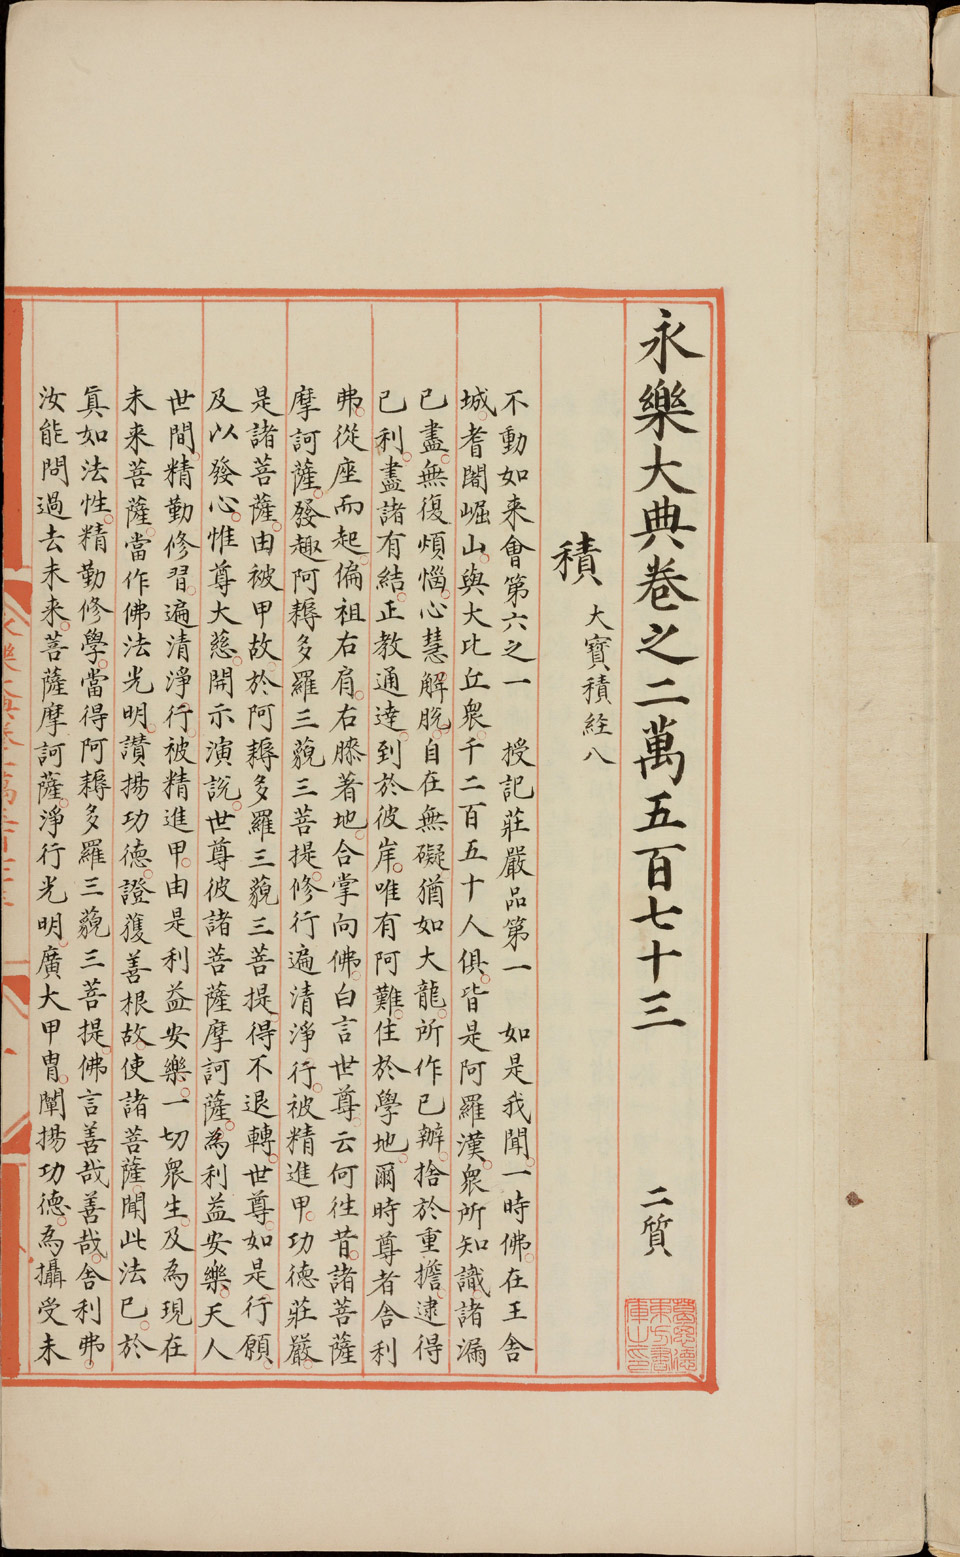 永樂大典卷之二萬五百七十三 二質
積 大寶積經八
不動如来會第六之一 授記莊嚴品第一 如是我聞。一時佛。在王舍
城。耆闍崛山。與大比丘衆。千二百五十人俱。皆是阿羅漢。衆所知識。諸漏
已盡。無復煩惱。心慧解脫。自在無礙。猶如大龍。所作已辦。捨於重擔。逮得
已利。盡諸有結。正教通達。到於彼岸。唯有阿難。住於學地。爾時尊者舍利
弗。從座而起。偏袒右肩。右膝著地。合掌向佛。白言世尊。云何徃昔。諸菩薩
摩訶薩。發趣阿耨多羅三藐三菩提。修行遍清淨行。被精進甲。功德莊嚴。
是諸菩薩。由被甲故。於阿耨多羅三藐三菩提得不退轉。世尊。如是行願。
及以發心。惟尊大慈。開示演說。世尊彼諸菩薩摩訶薩。為利益安樂。天人
世間。精勤修習。遍清淨行。被精進甲。由是利益安樂。一切衆生。及為現在
未来菩薩。當作佛法光明。讃揚功德。證獲善根故。使諸菩薩。聞此法已。於
真如法性。精勤修學。當得阿耨多羅三藐三菩提。佛言善哉善哉。舍利弗。
汝能問過去未来。菩薩摩訶薩。淨行光明。廣大甲冑。闡揚功德。為攝受未